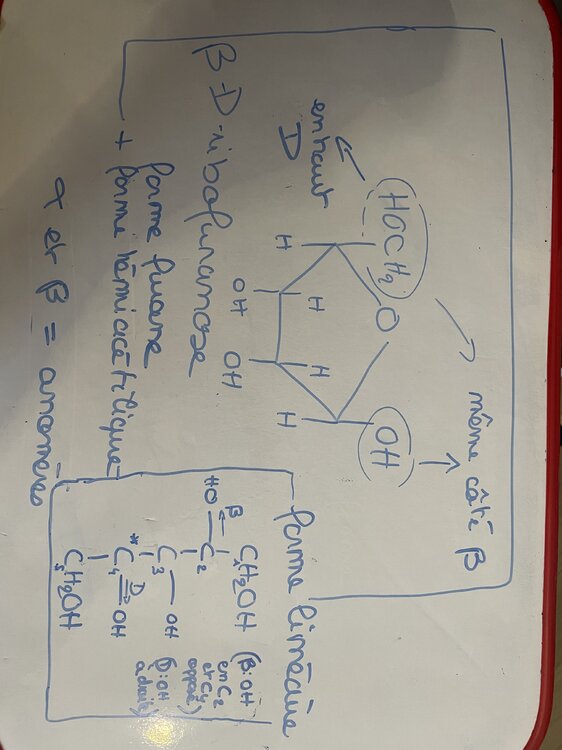 même côté β
HOCH₂
O
OH
en haut
D
H
H
H
H
OH
OH
β-D-ribofuranose
forme furane
+ forme hémiacétilique
α et β = anomères
forme linéaire
₁CH₂OH
β
HO
C₂
C₃
OH
*C₄
D
OH
₅CH₂OH
(β:OH
en C₂
et C₄
opposé)
(D:OH
à droite)